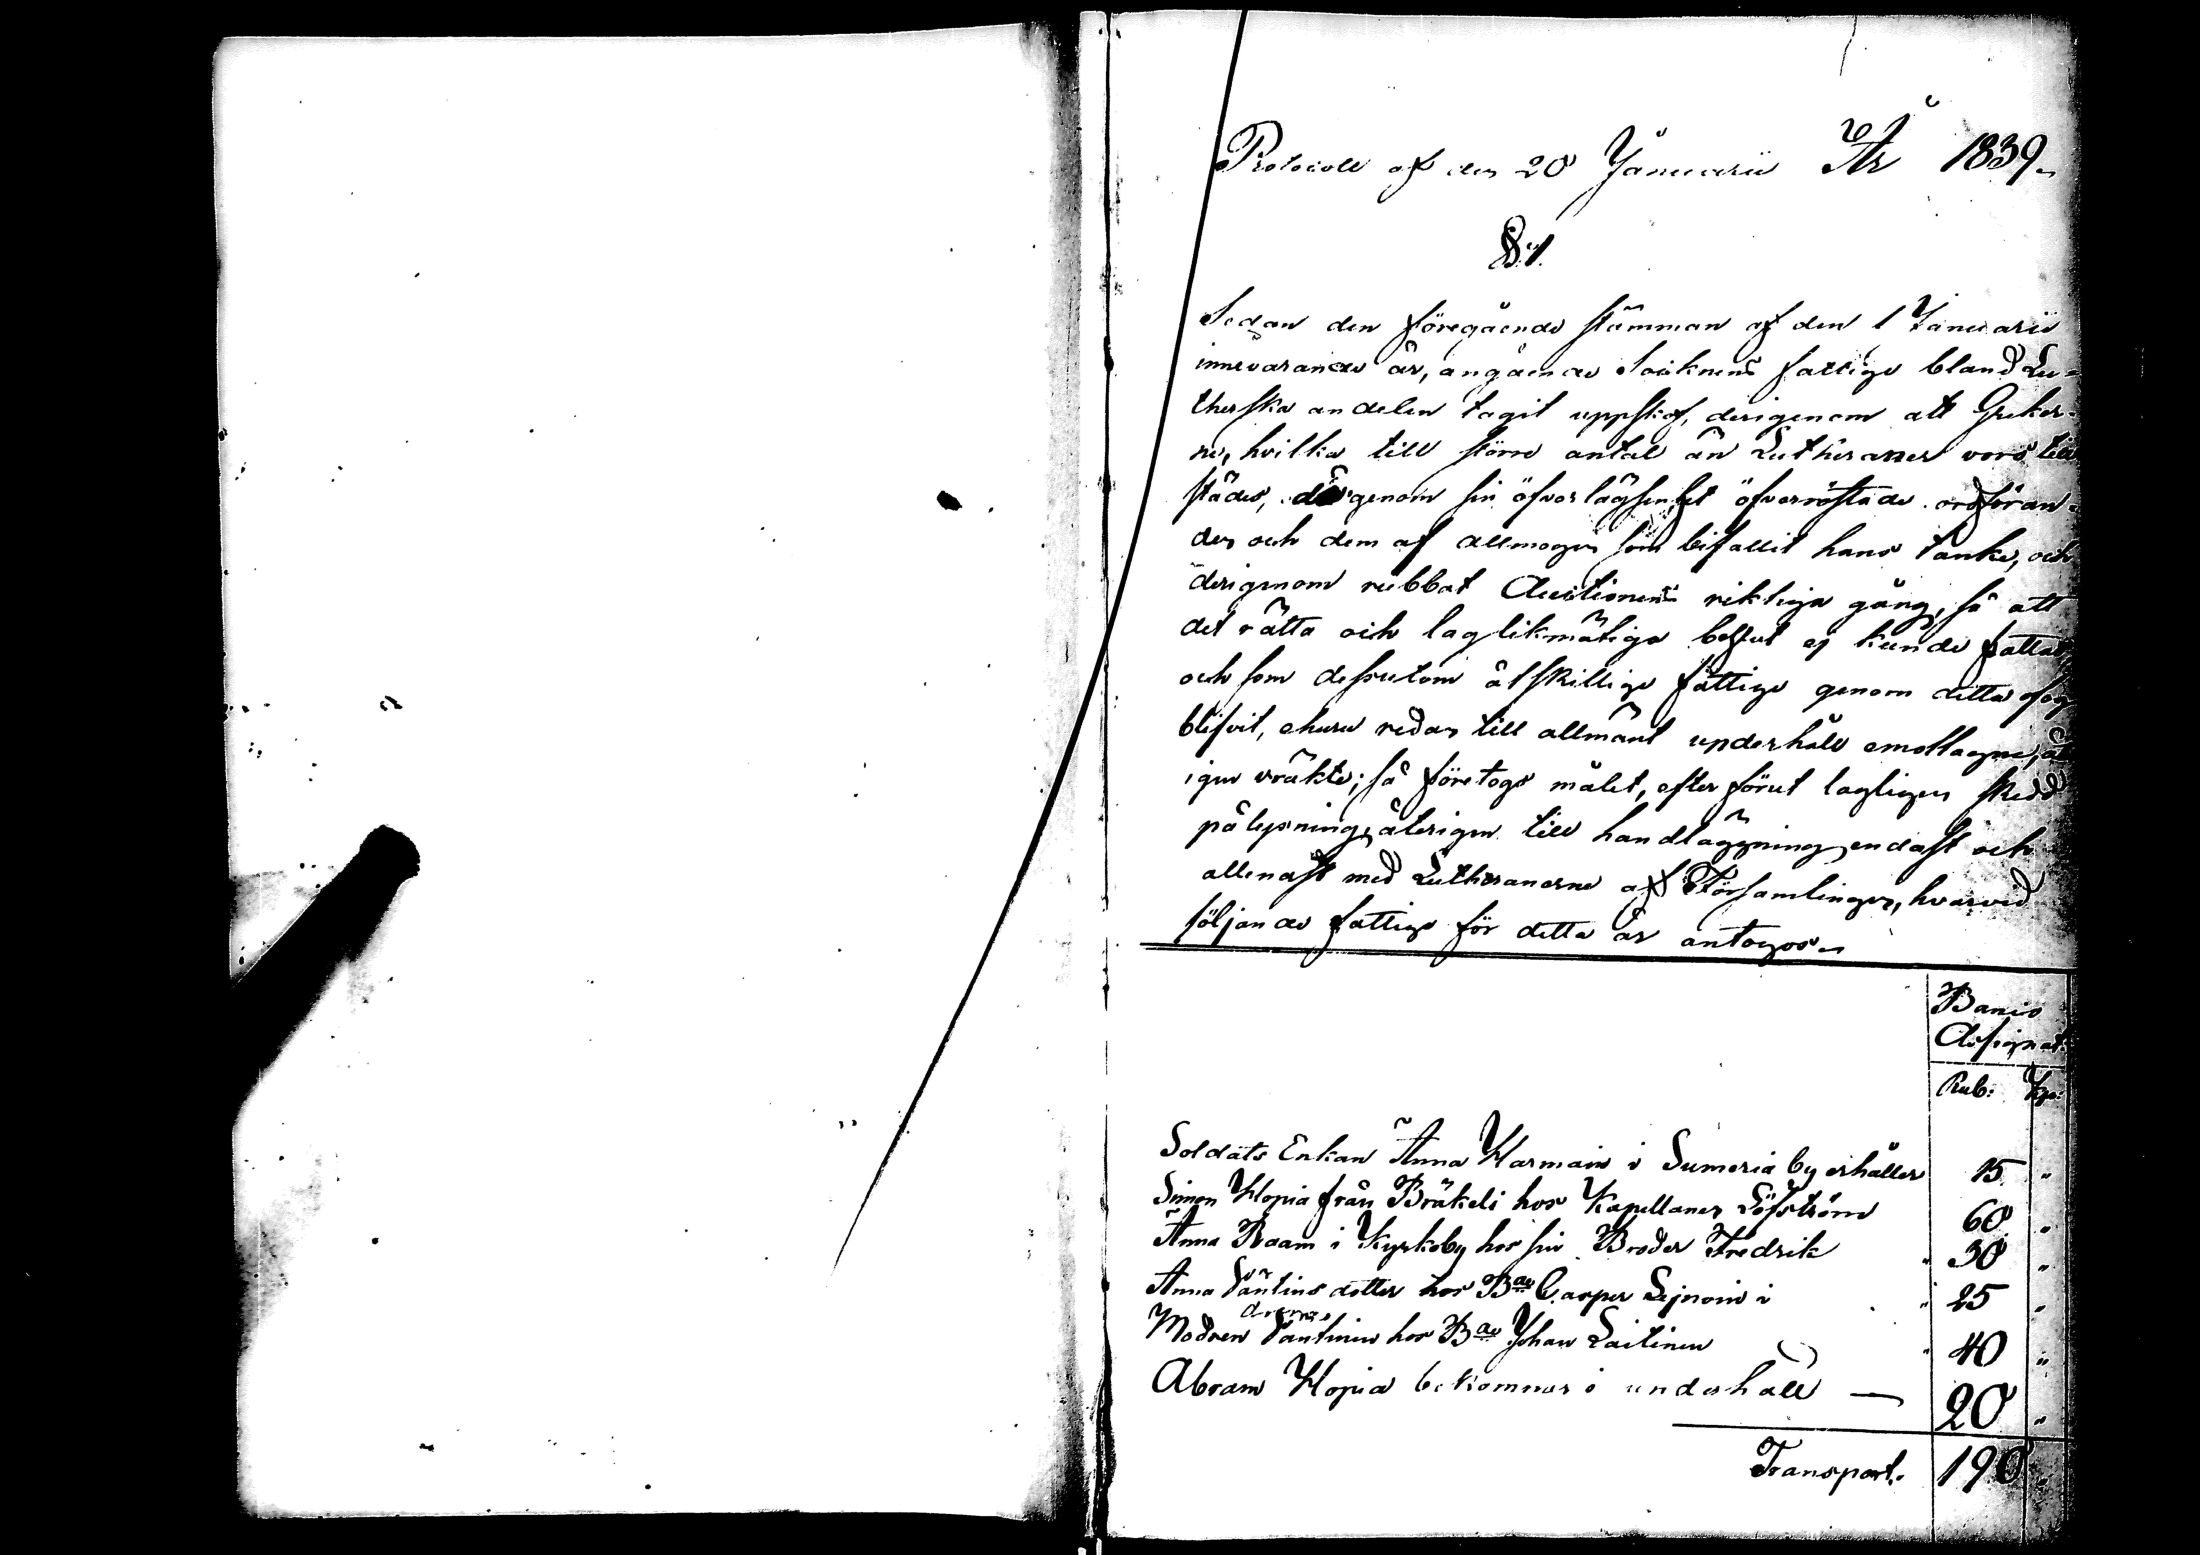 Protocoll af den 20 Januarii År 1839.
§.1.
Sedan den föregående stämman af den 1 Januarii
innevarande år, angående Socknens fattige bland Lu-
therska andelen tagit uppskof, derigenom att Greker-
ne, hvilka till större antal än Lutheraner voro till
städes, genom sin öfverlägsenhet öfverröstade ordföran-
den och dem af allmogen som bifallit hans tanke, och
derigenom rubbat Auctionens riktiga gång, så att
det rätta och laglikmätiga beslut ej kunde fattas,
och som dessutom åtskillige fattige genom detta ofog
blifvit, ehuru redan till allmänt underhåll emottagne, å
igen vräkte; så företogs målet, efter förut lagligen skedd
pålysning, återigen till handläggning, endast och
allenast med Lutheranerne af Församlingen, hvarvid
följande fattige för detta år antogos.
Banco
Assignat:
Rub: Kop:
Soldats Enkan Anna Karmain i Sumeria by erhåller 15 "
Simon Hopia från Bräkeli hos Kapellanen Löfström 60 "
Anna Raam i Kyrkoby hos sin Broder Fredrik " 30 "
Anna Päntins dotter hos Bde Casper Lejnoin i " 25 "
Modren Päntinen hos Bde Johan Laitinen " 40 "
Abram Hopia bekommer i underhåll — 20 "
Transport. 190 "